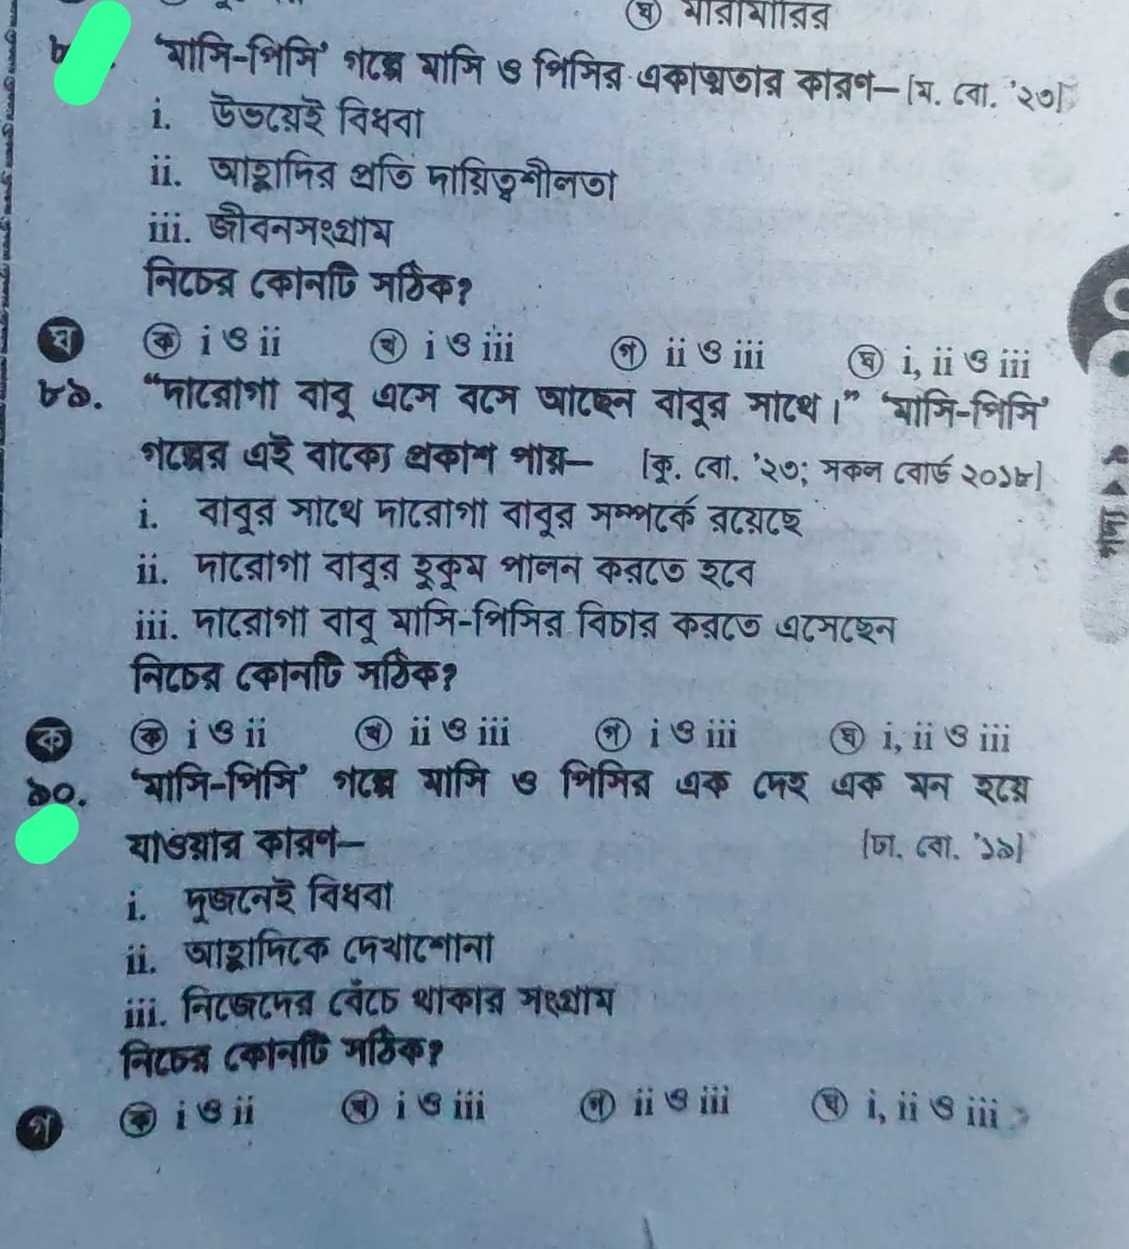 ঘ মারামারির
'মাসি-পিসি' গল্পে মাসি ও পিসির একাত্মতার কারণ— [ম. বো. '২৩]
i. উভয়েই বিধবা
ii. আহ্লাদির প্রতি দায়িত্বশীলতা
iii. জীবনসংগ্রাম
নিচের কোনটি সঠিক?
ঘ ক i ও ii খ i ও iii গ ii ও iii ঘ i, ii ও iii
৮৯. "দারোগা বাবু এসে বসে আছেন বাবুর সাথে।" 'মাসি-পিসি'
গল্পের এই বাক্যে প্রকাশ পায়— [কু. বো. '২৩; সকল বোর্ড ২০১৮]
i. বাবুর সাথে দারোগা বাবুর সম্পর্কে রয়েছে
ii. দারোগা বাবুর হুকুম পালন করতে হবে
iii. দারোগা বাবু মাসি-পিসির বিচার করতে এসেছেন
নিচের কোনটি সঠিক?
ক ক i ও ii খ ii ও iii গ i ও iii ঘ i, ii ও iii
৯০. 'মাসি-পিসি' গল্পে মাসি ও পিসির এক দেহ এক মন হয়ে
যাওয়ার কারণ— [ঢা. বো. '১৯]
i. দুজনেই বিধবা
ii. আহ্লাদিকে দেখাশোনা
iii. নিজেদের বেঁচে থাকার সংগ্রাম
নিচের কোনটি সঠিক?
গ ক i ও ii খ i ও iii গ ii ও iii ঘ i, ii ও iii